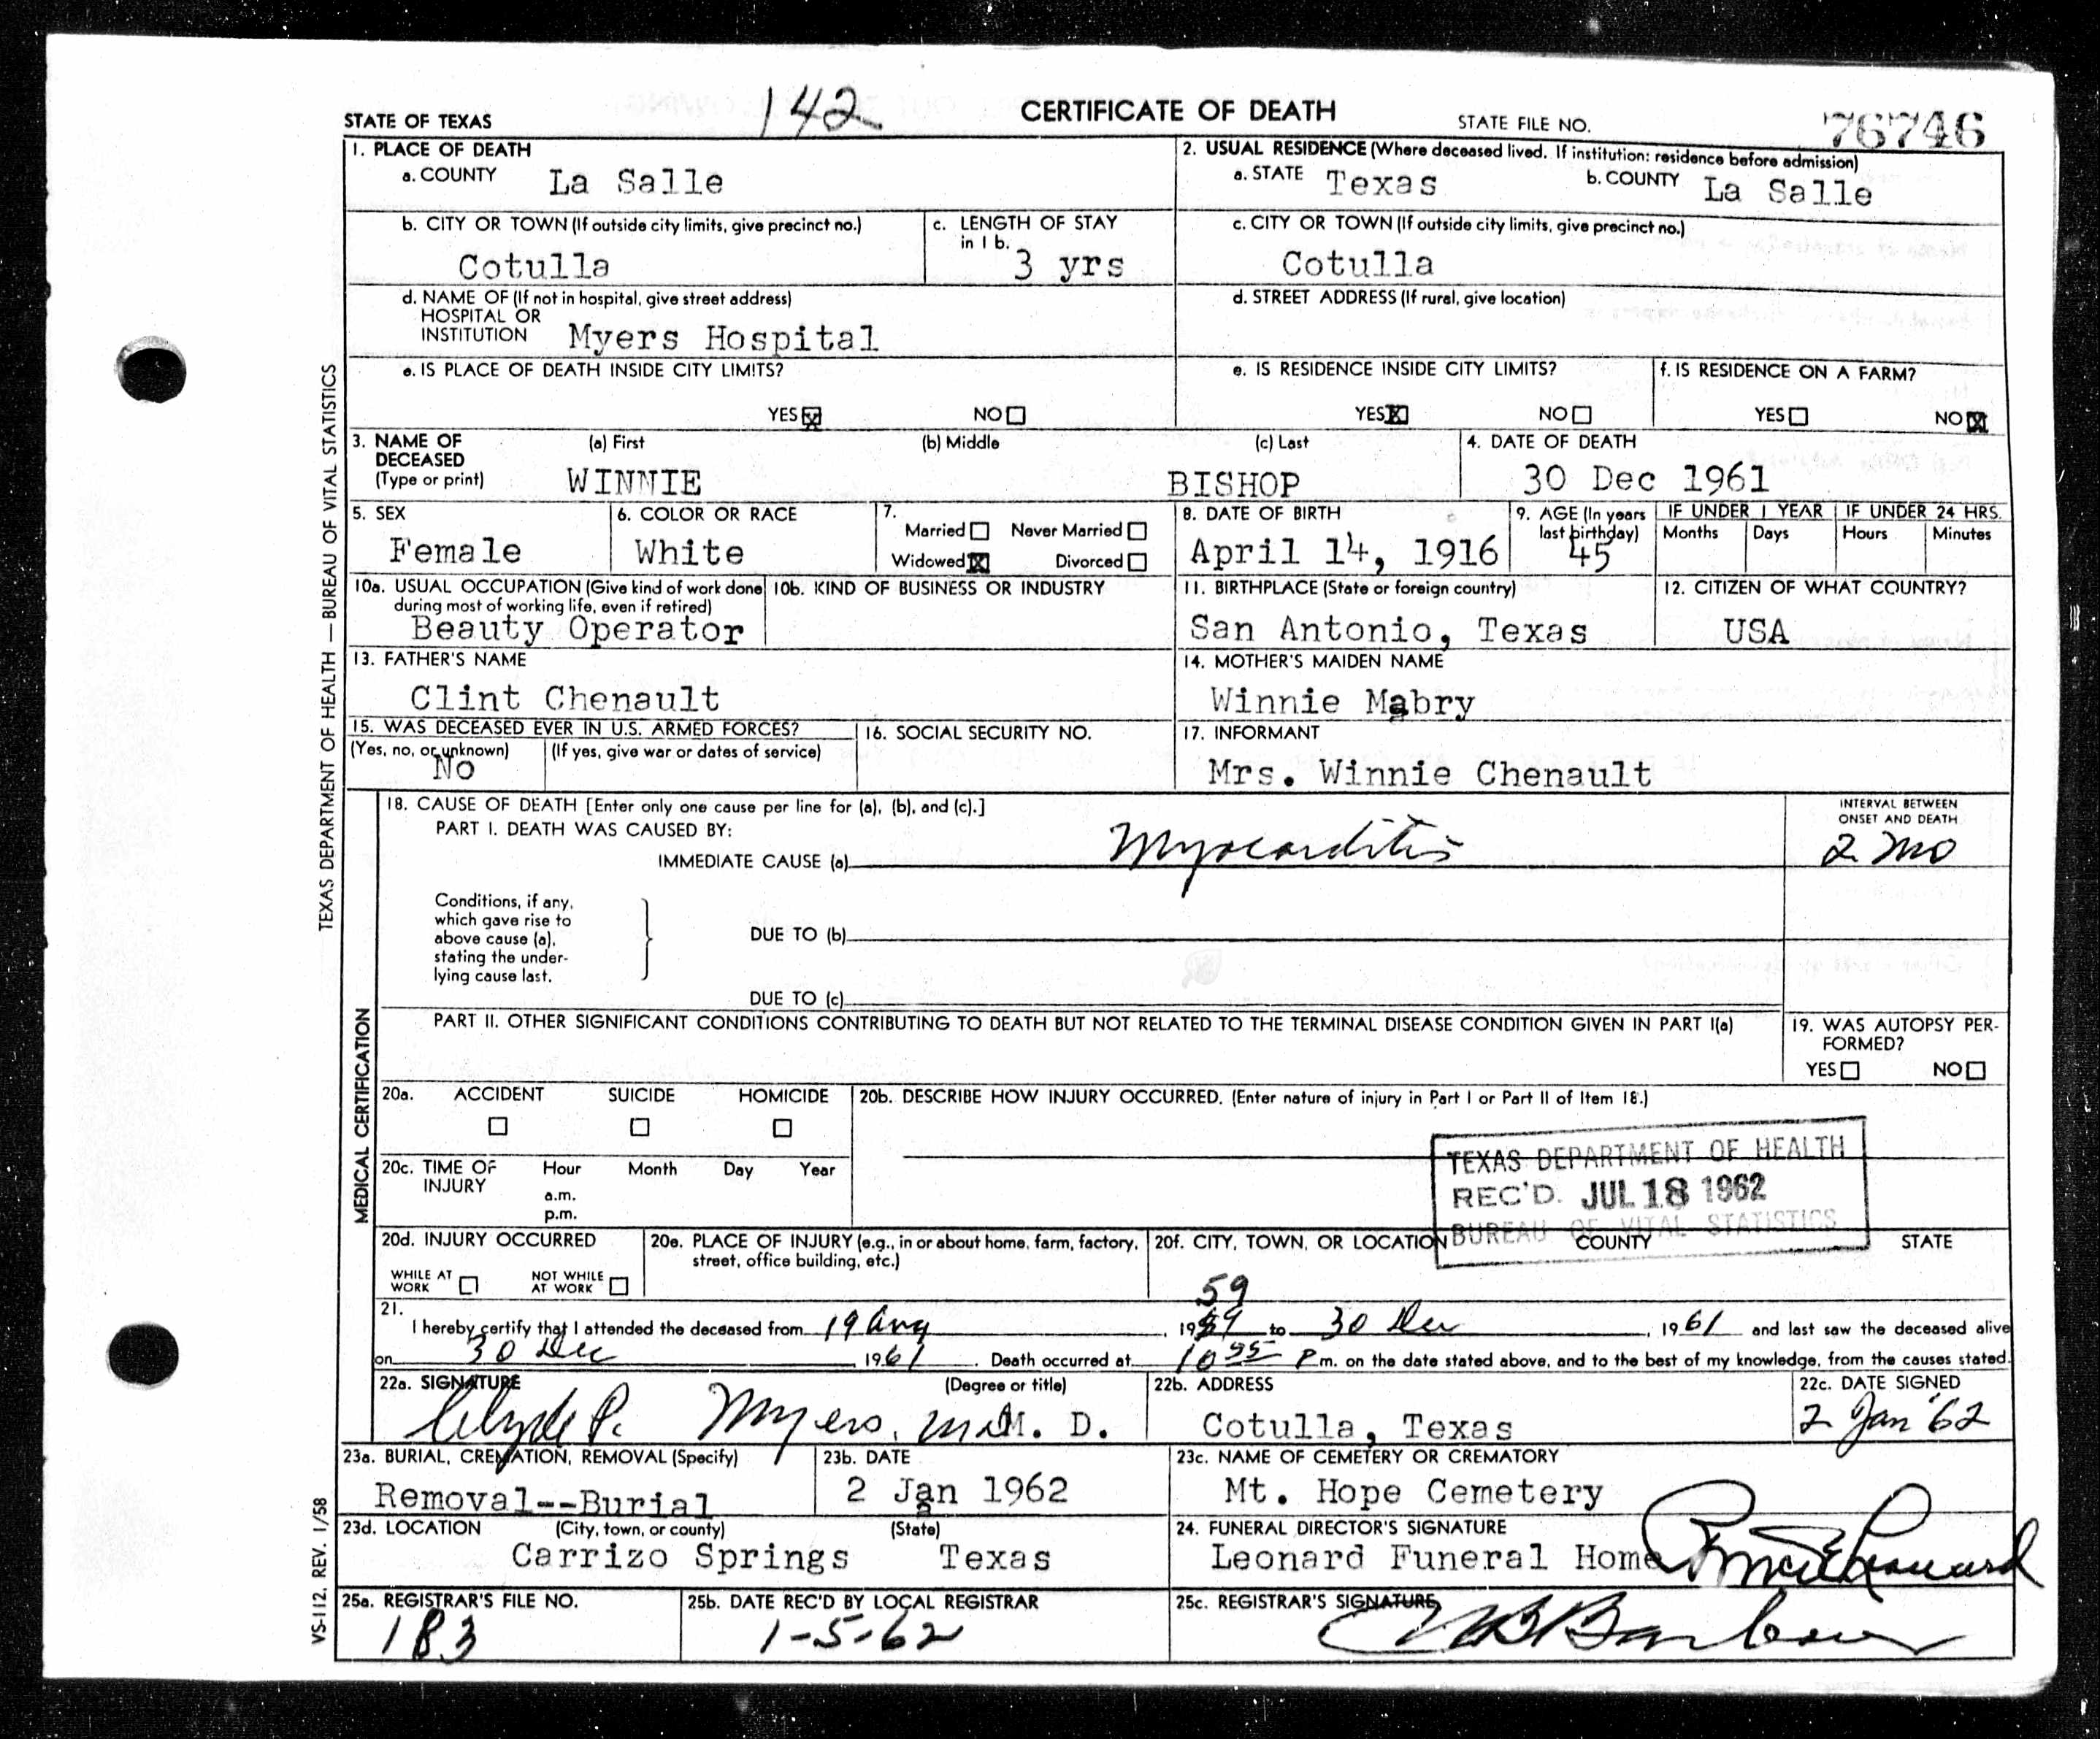 142
STATE OF TEXAS
CERTIFICATE OF DEATH
STATE FILE NO. 76746
1. PLACE OF DEATH
a. COUNTY La Salle
2. USUAL RESIDENCE (Where deceased lived. If institution: residence before admission)
a. STATE Texas b. COUNTY La Salle
b. CITY OR TOWN (If outside city limits, give precinct no.)
Cotulla
c. LENGTH OF STAY
in 1 b.
3 yrs
c. CITY OR TOWN (If outside city limits, give precinct no.)
Cotulla
d. NAME OF (If not in hospital, give street address)
HOSPITAL OR
INSTITUTION Myers Hospital
d. STREET ADDRESS (If rural, give location)
e. IS PLACE OF DEATH INSIDE CITY LIMITS?
YES X NO
e. IS RESIDENCE INSIDE CITY LIMITS?
YES X NO
f. IS RESIDENCE ON A FARM?
YES NO X
3. NAME OF
DECEASED
(Type or print)
(a) First (b) Middle (c) Last
WINNIE BISHOP
4. DATE OF DEATH
30 Dec 1961
5. SEX
Female
6. COLOR OR RACE
White
7.
Married Never Married
Widowed X Divorced
8. DATE OF BIRTH
April 14, 1916
9. AGE (In years
last birthday)
45
IF UNDER 1 YEAR
Months Days
IF UNDER 24 HRS.
Hours Minutes
10a. USUAL OCCUPATION (Give kind of work done
during most of working life, even if retired)
Beauty Operator
10b. KIND OF BUSINESS OR INDUSTRY
11. BIRTHPLACE (State or foreign country)
San Antonio, Texas
12. CITIZEN OF WHAT COUNTRY?
USA
13. FATHER'S NAME
Clint Chenault
14. MOTHER'S MAIDEN NAME
Winnie Mabry
15. WAS DECEASED EVER IN U.S. ARMED FORCES?
(Yes, no, or unknown) (If yes, give war or dates of service)
No
16. SOCIAL SECURITY NO.
17. INFORMANT
Mrs. Winnie Chenault
18. CAUSE OF DEATH [Enter only one cause per line for (a), (b), and (c).]
PART I. DEATH WAS CAUSED BY:
IMMEDIATE CAUSE (a) Myocarditis
INTERVAL BETWEEN
ONSET AND DEATH
2 mo
Conditions, if any,
which gave rise to
above cause (a),
stating the under-
lying cause last.
DUE TO (b)
DUE TO (c)
PART II. OTHER SIGNIFICANT CONDITIONS CONTRIBUTING TO DEATH BUT NOT RELATED TO THE TERMINAL DISEASE CONDITION GIVEN IN PART I(a)
19. WAS AUTOPSY PER-
FORMED?
YES NO
20a. ACCIDENT SUICIDE HOMICIDE
20b. DESCRIBE HOW INJURY OCCURRED. (Enter nature of injury in Part I or Part II of Item 18.)
TEXAS DEPARTMENT OF HEALTH
REC'D. JUL 18 1962
BUREAU OF VITAL STATISTICS
20c. TIME OF
INJURY
Hour Month Day Year
a.m.
p.m.
20d. INJURY OCCURRED
WHILE AT
WORK
NOT WHILE
AT WORK
20e. PLACE OF INJURY (e.g., in or about home, farm, factory,
street, office building, etc.)
20f. CITY, TOWN, OR LOCATION COUNTY STATE
59
21.
I hereby certify that I attended the deceased from 19 Aug, 1959 to 30 Dec, 1961 and last saw the deceased alive
on 30 Dec 1961. Death occurred at 10 55 P m. on the date stated above, and to the best of my knowledge, from the causes stated.
22a. SIGNATURE (Degree or title)
Clyde P. Myers, M.D. M. D.
22b. ADDRESS
Cotulla, Texas
22c. DATE SIGNED
2 Jan '62
23a. BURIAL, CREMATION, REMOVAL (Specify)
Removal--Burial
23b. DATE
2 Jan 1962
23c. NAME OF CEMETERY OR CREMATORY
Mt. Hope Cemetery
23d. LOCATION (City, town, or county) (State)
Carrizo Springs Texas
24. FUNERAL DIRECTOR'S SIGNATURE
Leonard Funeral Home
25a. REGISTRAR'S FILE NO.
183
25b. DATE REC'D BY LOCAL REGISTRAR
1-5-62
25c. REGISTRAR'S SIGNATURE
TEXAS DEPARTMENT OF HEALTH — BUREAU OF VITAL STATISTICS
MEDICAL CERTIFICATION
VS-112. REV. 1/58